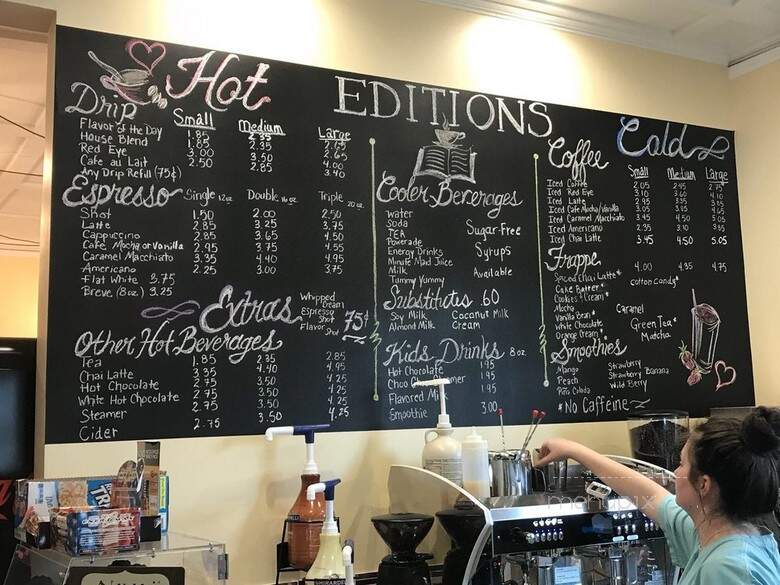 Hot
EDITIONS
Drip
Small Medium Large
Flavor of the Day 1.85 2.35 2.65
House Blend 1.85 2.35 2.65
Red Eye 3.00 3.50 4.00
Cafe au Lait 2.50 2.85 3.40
Any Drip Refill (75¢)
Espresso
Single 12oz Double 16oz Triple 20oz
Shot 1.50 2.00 2.50
Latte 2.85 3.25 3.75
Cappuccino 2.85 3.65 4.50
Cafe Mocha or Vanilla 2.95 3.75 4.55
Caramel Macchiato 3.35 4.40 4.95
Americano 2.25 3.00 3.75
Flat White 3.75
Breve (8oz) 3.25
Extras
Whipped Cream
Espresso Shot
Flavor Shot
75¢
Other Hot Beverages
Tea 1.85 2.35 2.85
Chai Latte 3.35 4.40 4.95
Hot Chocolate 2.75 3.50 4.25
White Hot Chocolate 2.75 3.50 4.25
Steamer 2.75 3.50 4.25
Cider 2.75 3.50 4.25
Cooler Beverages
Water
Soda
TEA
Powerade
Energy Drinks
Minute Maid Juice
Milk
Tummy Yummy
Sugar-Free
Syrups
Available
Substitutes .60
Soy Milk Coconut Milk
Almond Milk Cream
Kids Drinks 8oz.
Hot Chocolate 1.95
1.95
Flavored 1.95
Smoothie 3.00
Cold
Coffee
Small Medium Large
Iced Coffee 2.05 2.45 2.75
Iced Red Eye 3.10 3.60 4.10
Iced Latte 2.95 3.35 3.85
Iced Cafe Mocha/Vanilla 3.05 3.85 4.65
Iced Caramel Macchiato 3.45 4.50 5.05
Iced Americano 2.35 3.10 3.85
Iced Chai Latte 3.45 4.50 5.05
Frappe
4.00 4.35 4.75
Spiced Chai Latte*
Cake Batter*
Cookies & Cream*
Mocha
Vanilla Bean*
White Chocolate
Orange Cream*
Cotton Candy*
Caramel
Green Tea*
Matcha
Smoothies
Mango
Peach
Pina Colada
Strawberry
Strawberry Banana
Wild Berry
*No Caffeine